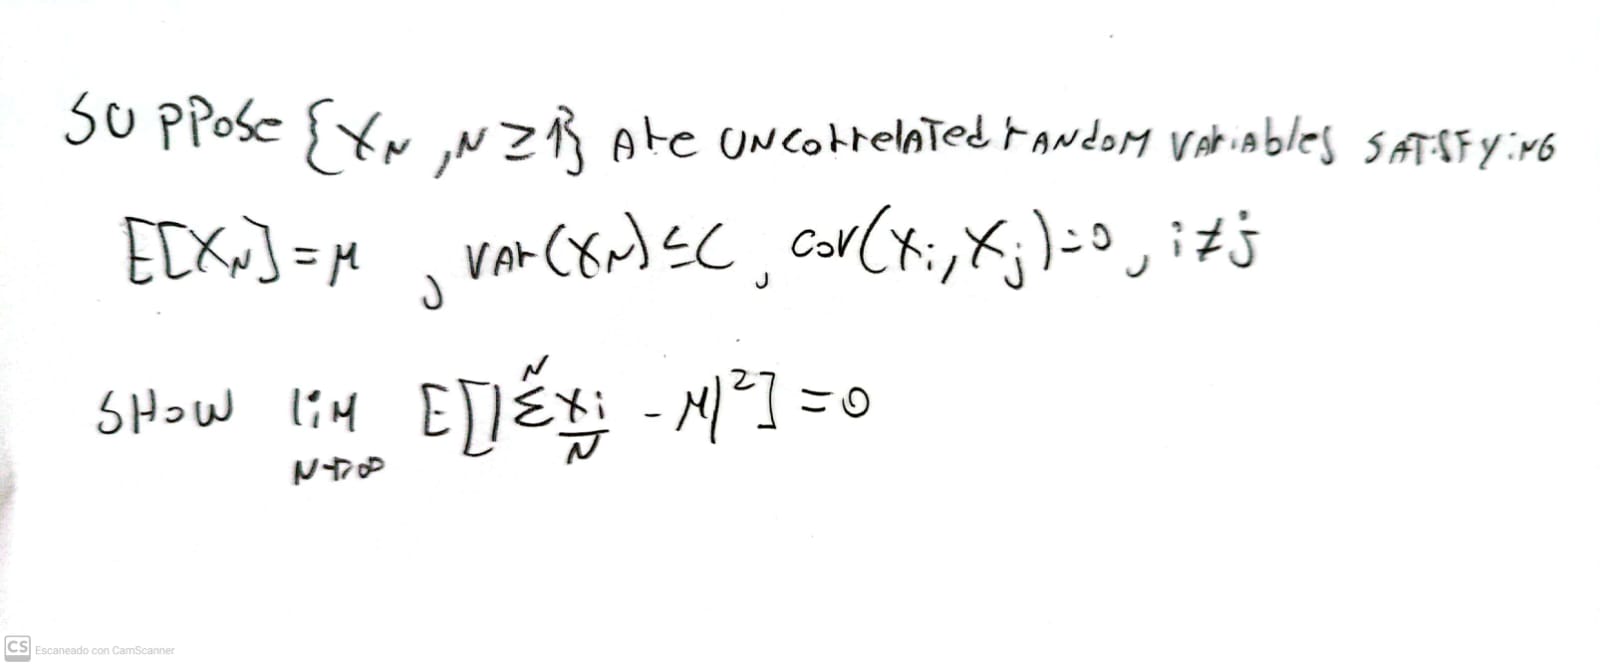 SUPPOSE {X_N, N ≥ 1} ARE UNCORRELATED RANDOM VARIABLES SATISFYING
E[X_N] = μ, VAR(X_N) ≤ C, COV(X_i, X_j) = 0, i ≠ j
SHOW lim_{N→∞} E[|Σ^N X_i/N - μ|^2] = 0
CS Escaneado con CamScanner